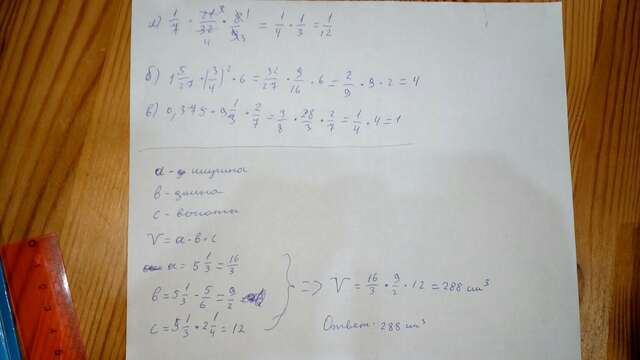 а) 1/7 · 21/32 · 8/9 = 1/4 · 1/3 = 1/12
б) 1 5/27 · (3/4)² · 6 = 32/27 · 9/16 · 6 = 2/9 · 9 · 2 = 4
в) 0,375 · 9 1/3 · 2/7 = 3/8 · 28/3 · 2/7 = 1/4 · 4 = 1
a - ширина
в - длина
с - высота
V = a · в · с
a = 5 1/3 = 16/3
в = 5 1/3 - 5/6 = 9/2
c = 5 1/3 · 2 1/4 = 12
=> V = 16/3 · 9/2 · 12 = 288 см³
Ответ: 288 см³